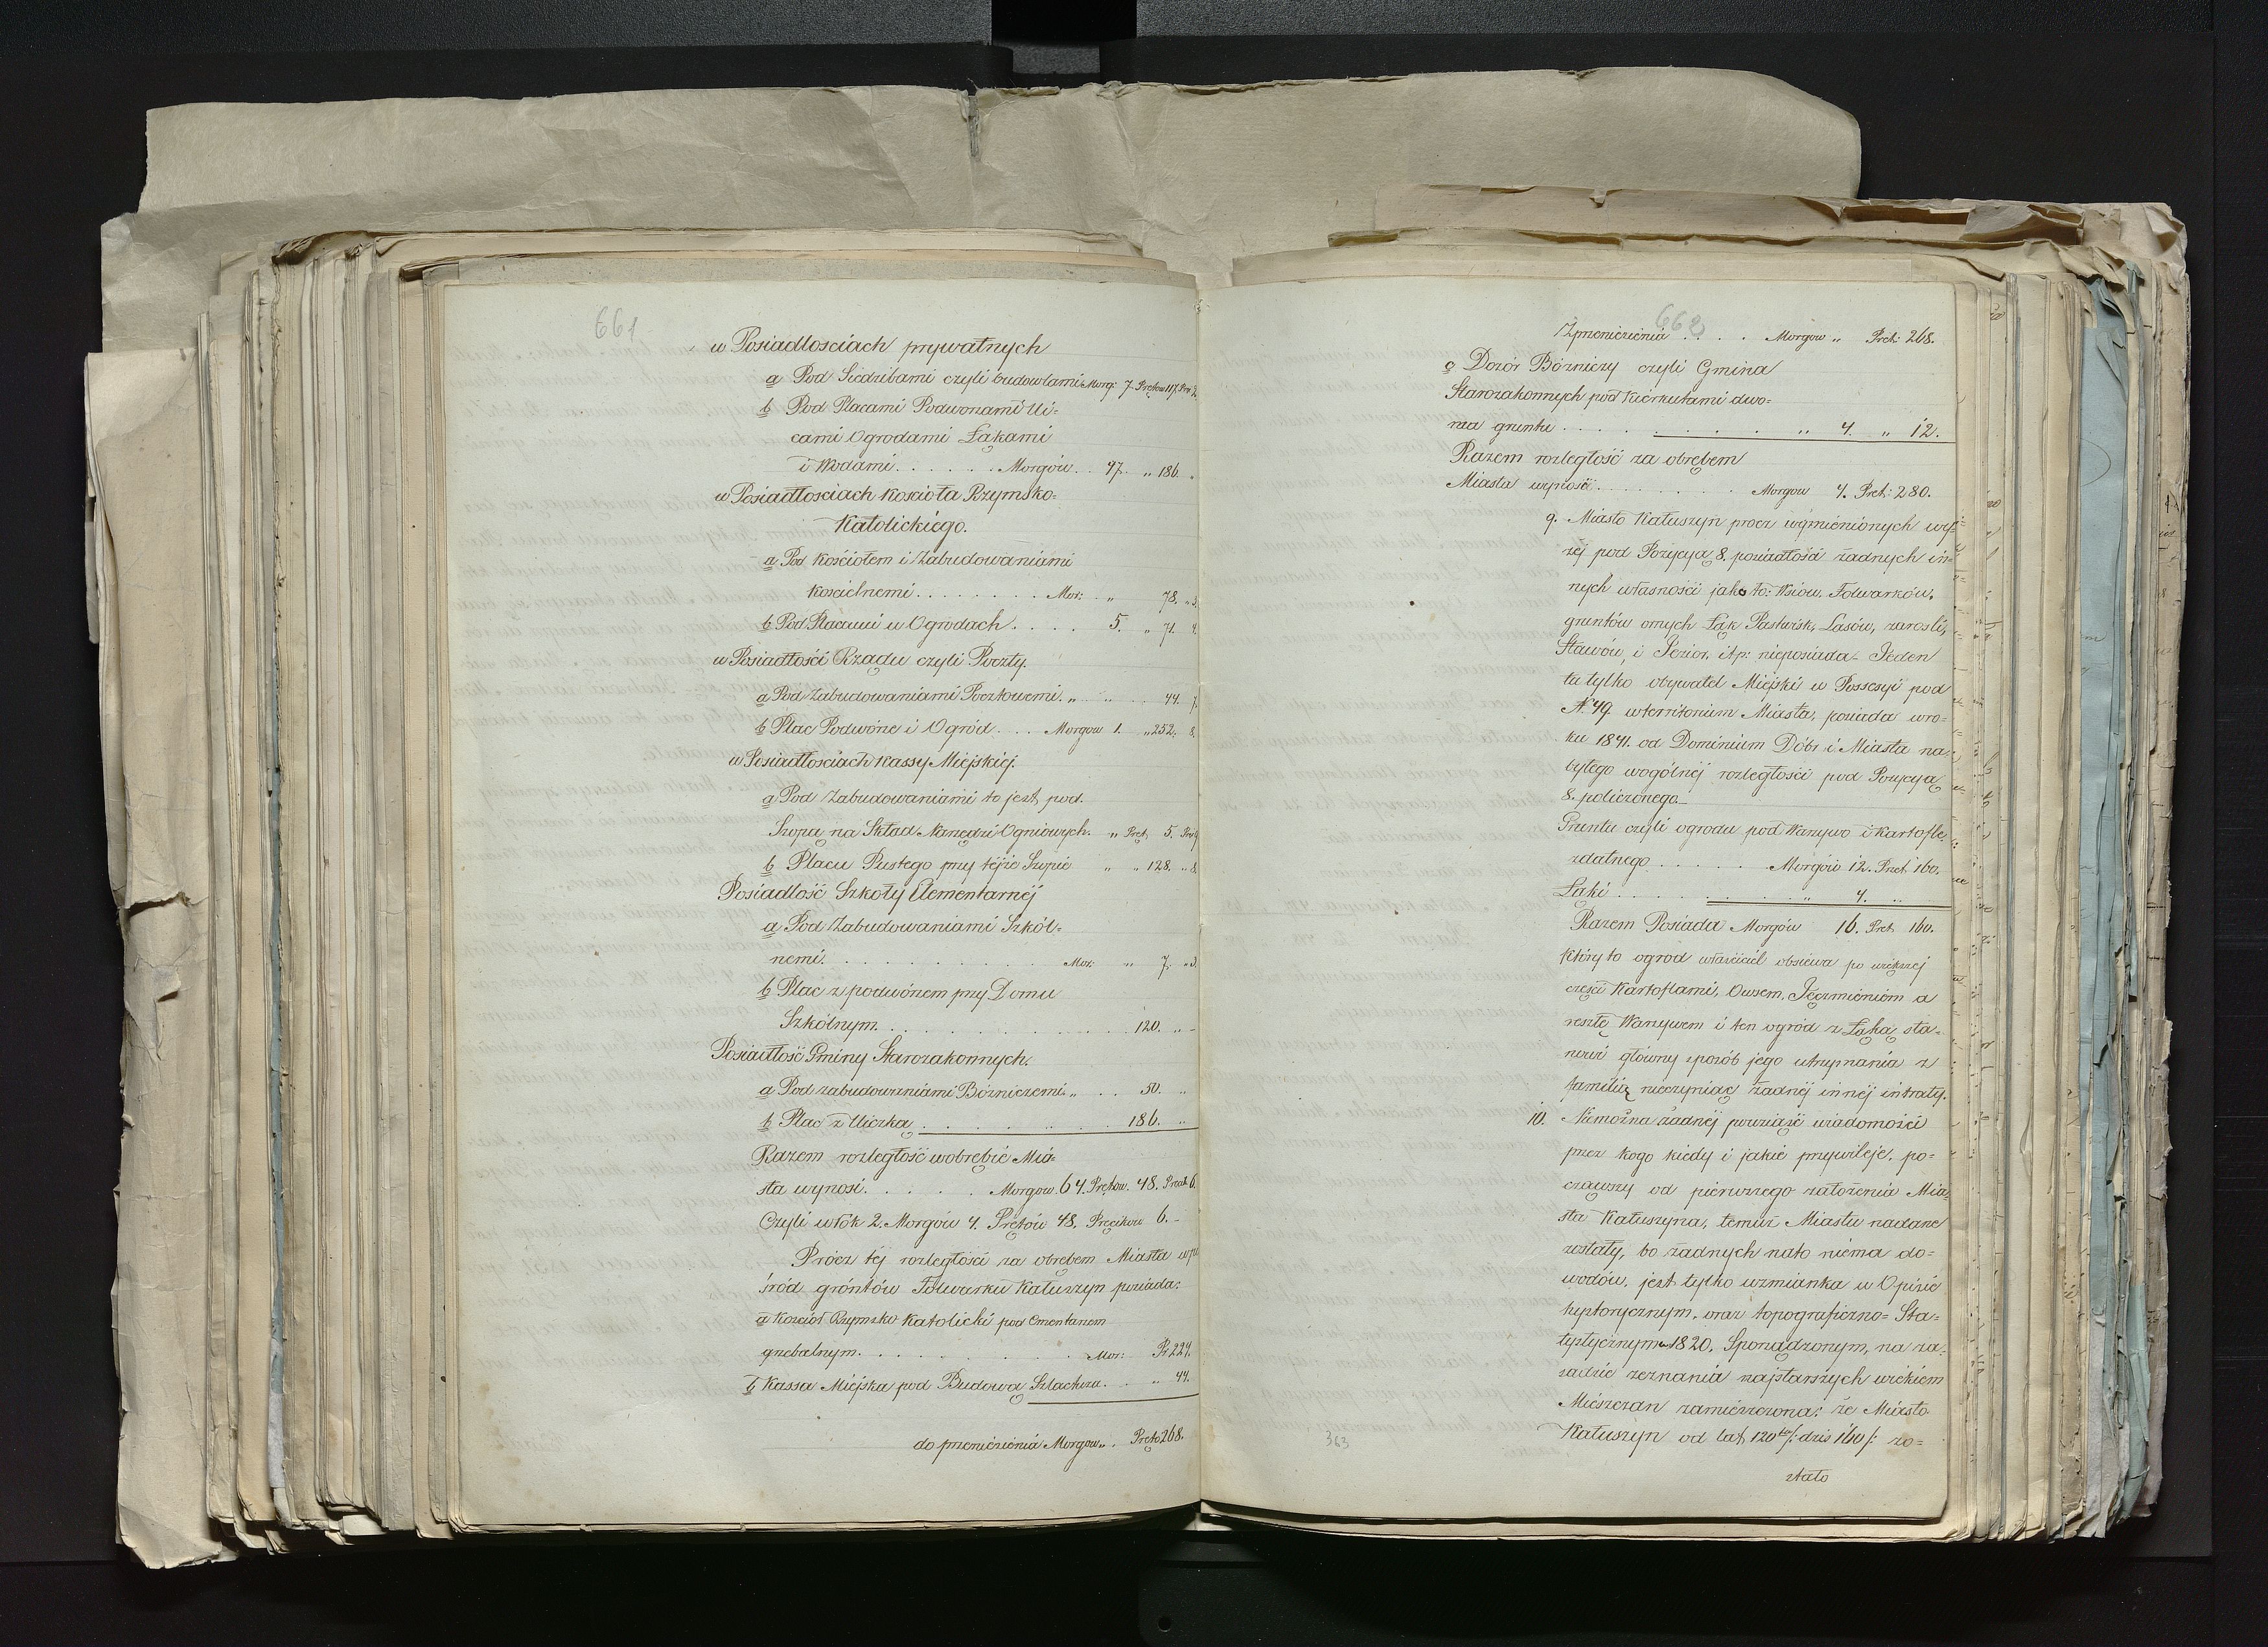 661
w Posiadłosciach prywatnych
a Pod Siedzibami czyli budowlami Morg: 7. Prętow 117. Prec
b Pod Placami Podwonami Uli=
cami Ogrodami Łąkami
i Wodami. . . . . . Morgów. . 47. „ 186.
w Posiadłosciach kościoła Rzymsko=
Katolickiego.
a Pod kościołem i Zabudowaniami
kościelnemi . . . . . . . . Mor: „ 78. „ 3.
b Pod Placami w Ogrodach . . . . 5. „ 71.
w Posiadłości Rządu czyli Poczty.
a Pod Zabudowaniami Pocztowemi. „ „ . . 44. 7.
b Plac Podwórze i Ogród . . . Morgow 1. „ 252. 8.
w Posiadłościach kassy Miejskiej.
a Pod Zabudowaniami to jest pod.
Szopą na Skład Narzędzi Ogniowych. „ Pręt. 5.
b Placu Pustego przy tejże Szopie „ „ 128. „ 8.
Posiadłość Szkoły Elementarnéj
a Pod Zabudowaniami Szkól=
nemi. . . . . . . . . . Mor: „ 7. „ 3.
b Plac z podwórzem przy Domu
Szkólnym. . . . . . . . . . . . 120. „ -
Posiadłość Gminy Starozakonnych.
a Pod zabudowaniami Bózniczemi. „ . . 50. „
b Plac z Uliczką . . . . . „ . . 186. „
Razem rozległość w obrębie Mia=
sta wynosi. . . . . . Morgow. 64. Prętow. 48. Precik 6.
Czyli włók 2. Morgów 4. Prętów 48. Pręcikow 6. -
Prócz téj rozległości za obrębem Miasta wpo
śród gróntów Folwarku Kałuszyn posiada:
a Kościół Rzymsko Katolicki pod Cmentarzem
grzebalnym. . . . . . . . . . Mor: Pr 224.
b Kassa Miejska pod Budową Szlachtuza. . . „ 44.
do przeniesienia Morgow „ . Pręto 268.
662
Z przeniesienia . . . . Morgow „ Pręt: 268.
c Dozór Bózniczy czyli Gmina
Starozakonnych pod Kierkutami dwo=
ma gruntu . . . . . . . . . „ 4. „ 12.
Razem rozległość za obrębem
Miasta wynosi. . . . . . . . Morgow 4. Pręt: 280.
9. Miasto Kałuszyn procz wymienionych wy=
żéj pod Pozycyą 8. posiadłości żadnych in=
nych własności jako to: Wsiów, Folwarków,
gruntów ornych Łąk Pastwisk, Lasów, zarosli,
Stawów, i Jezior, itp: nieposiada - Jeden
tu tylko obywatel Miejski w Possesyi pod
N. 49. w territorium Miasta, posiada w ro=
ku 1841. od Dominium Dóbr i Miasta na=
bytego wogólnéj rozległości pod Pozycyą
8. policzonego -
Gruntu czyli ogrodu pod Warzywo i kartofle
zdatnego . . . . . . Morgów 12. Pręt 160.
Łąki . . . . . . . . . „ 4. „
Razem Posiada Morgów 16. Pręt 160.
który to ogród właściciel obsiewa po większej
części Kartoflami, Owsem, Jęczmieniem a
resztę Warzywem i ten ogród z Łąką sta=
nowi główny sposób jego utrzymania z
familią nieczyniąc żadnéj innéj intraty.
10. Niemożna żadnéj powziąść wiadomości
przez kogo kiedy i jakie przywileje, po=
cząwszy od pierwszego założenia Mia=
sta Kałuszyna, temuż Miastu nadane
zostały, bo żadnych nato niema do=
wodów, jest tylko wzmianka w Opisie
hystorycznym, oraz topograficzno= Sta=
tystycznym w 1820. Sporządzonym, na za=
sadzie zeznania najstarszych wiekiem
Mieszczan zamieszczona: że Miasto
Kałuszyn od lat 120 tu /: dziś 160 /: zo=
stało
363